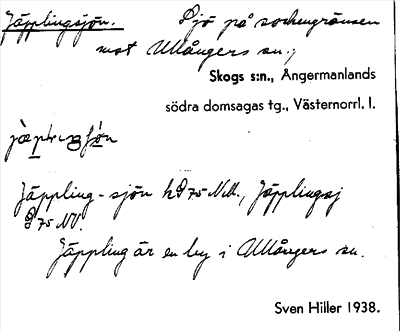 Jäpplingsjön. Sjö på sockengränsen
mot Ullångers sn.,
Skogs s:n., Ångermanlands
södra domsagas tg., Västernorrl. l.
Jäppling-sjön kP 75 Nill., Jäpplingsj
P 75 NV.
Jäppling är en by i Ullångers sn.
Sven Hiller 1938.